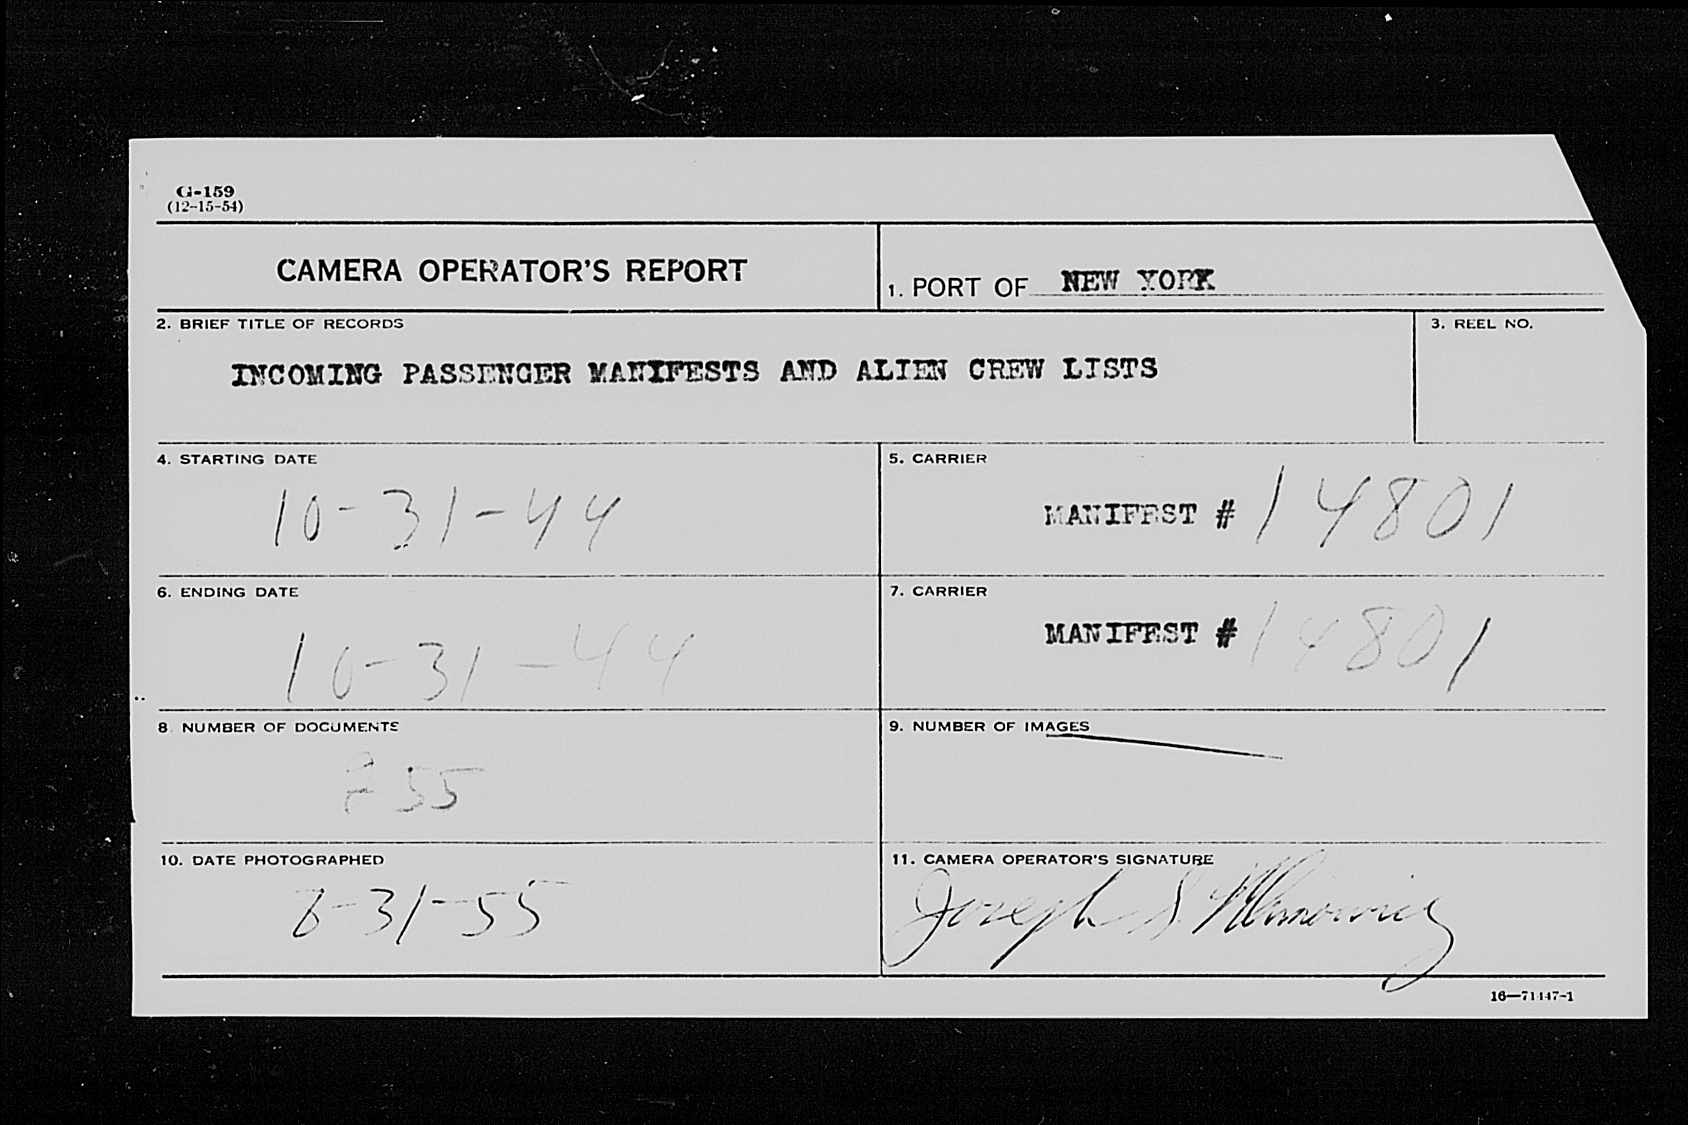 G-159
(12-15-54)
CAMERA OPERATOR'S REPORT
1. PORT OF NEW YORK
2. BRIEF TITLE OF RECORDS
3. REEL NO.
INCOMING PASSENGER MANIFESTS AND ALIEN CREW LISTS
4. STARTING DATE
10-31-44
5. CARRIER
MANIFEST # 14801
6. ENDING DATE
10-31-44
7. CARRIER
MANIFEST # 14801
8 NUMBER OF DOCUMENTS
9. NUMBER OF IMAGES
10. DATE PHOTOGRAPHED
8-31-55
11. CAMERA OPERATOR'S SIGNATURE
Joseph S.
16—71447-1